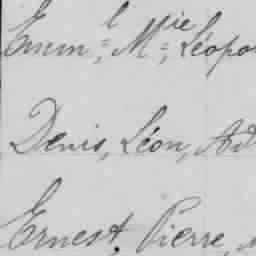 Emm=l, M=ie, Léopo
Denis, Léon, Ad
Ernest, Pierre,